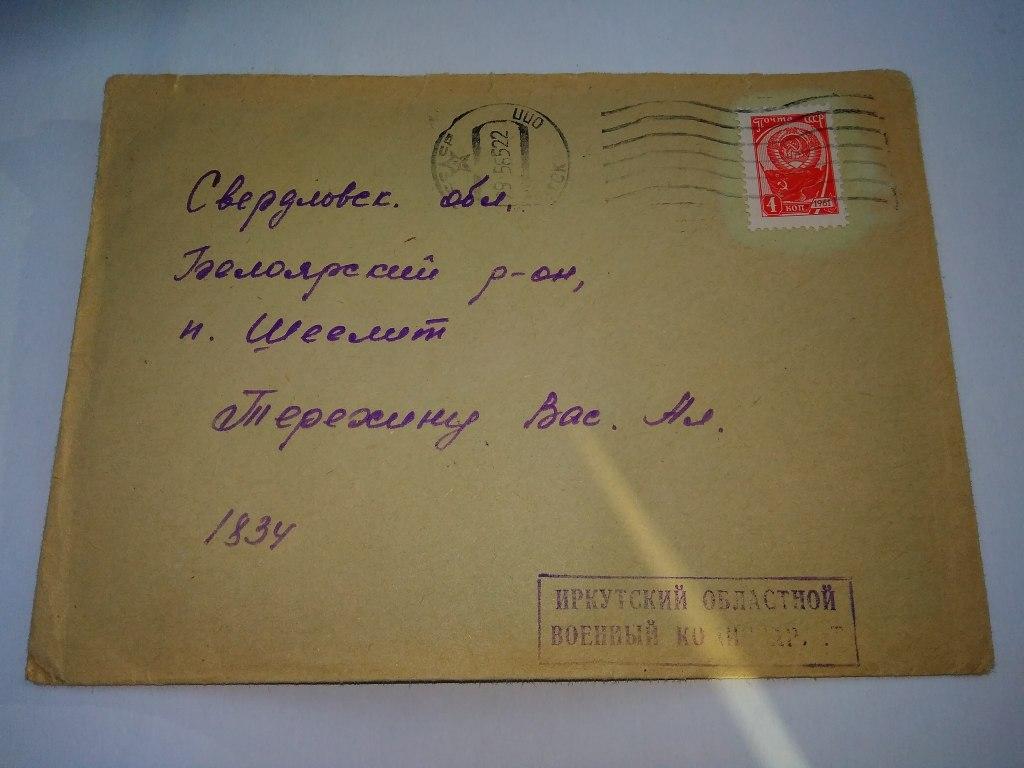 Почта СССР
4 коп 1961
Свердловск. обл.
Белоярский р-он,
п. Шеелит
Терехину Вас. Ал.
1834
ИРКУТСКИЙ ОБЛАСТНОЙ
ВОЕННЫЙ